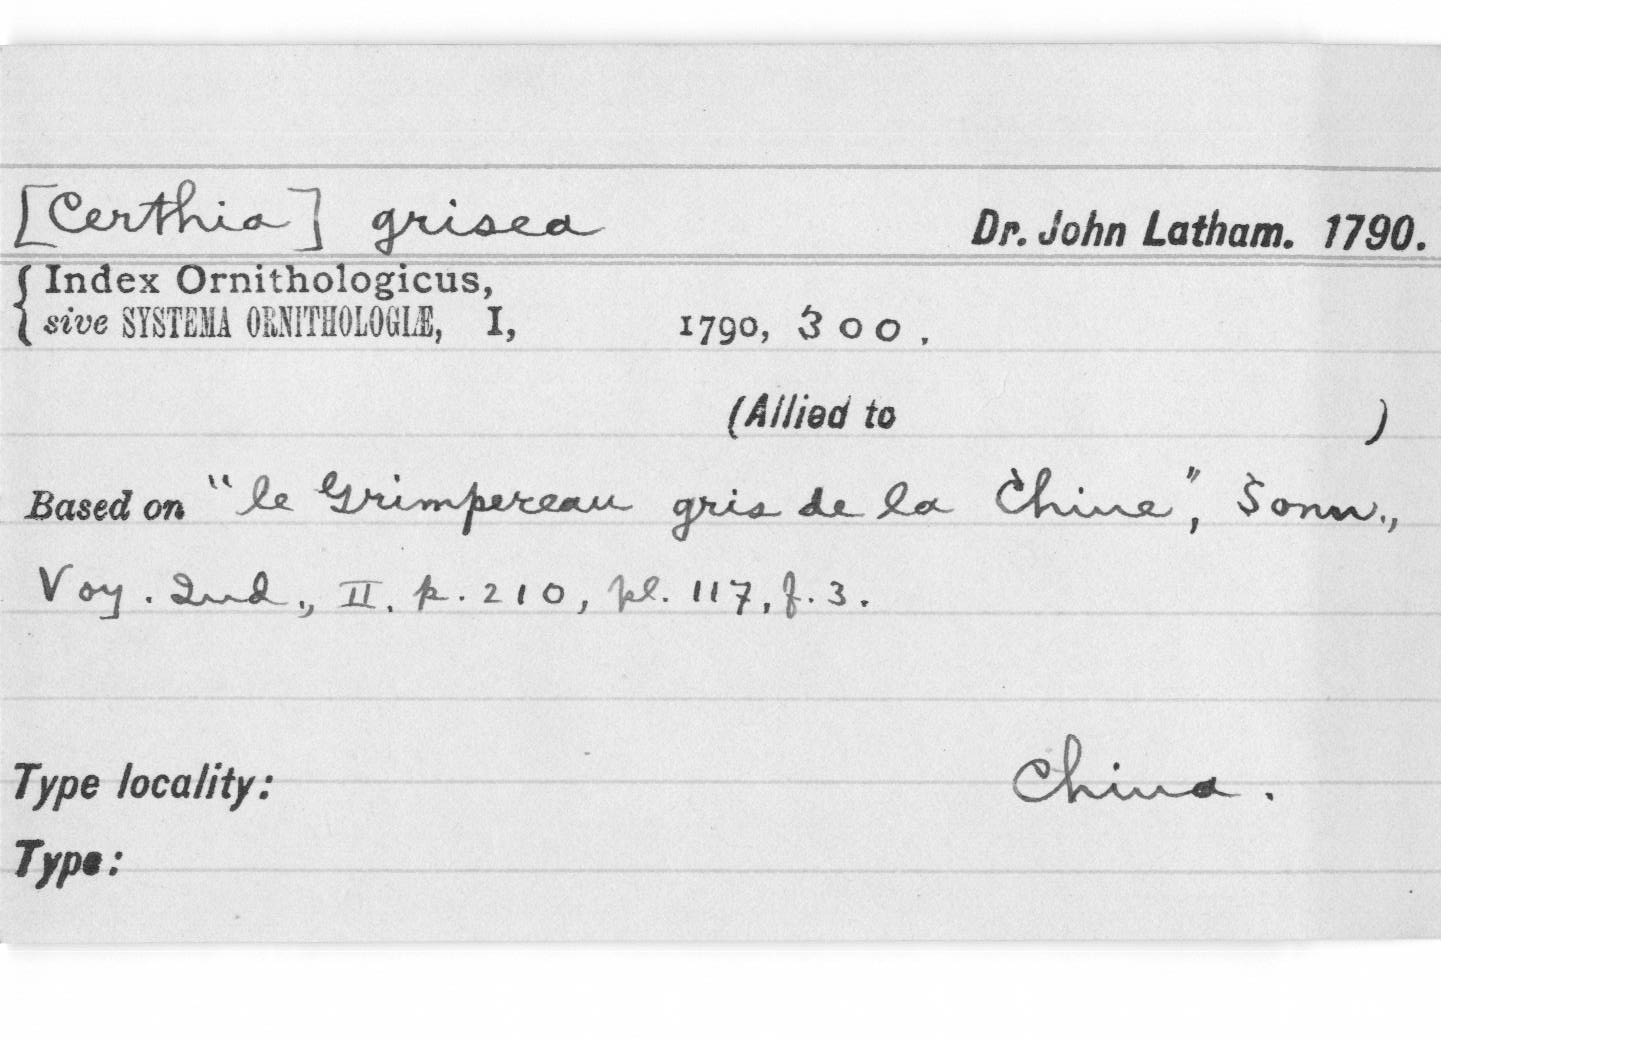 [Certhia] grisea Dr. John Latham. 1790.
Index Ornithologicus,
sive SYSTEMA ORNITHOLOGIÆ, I, 1790, 300.
(Allied to )
Based on "le Grimpereau gris de la Chine", Sonn.,
Voy. Ind., II. p. 210, pl. 117, f. 3.
Type locality: China.
Type: